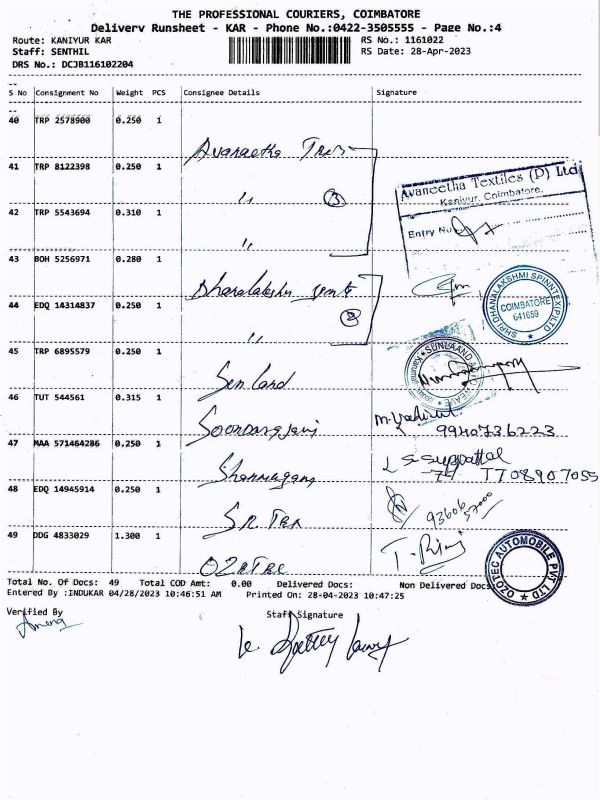 THE PROFESSIONAL COURIERS, COIMBATORE
Delivery Runsheet - KAR - Phone No.:0422-3505555 - Page No.:4
Route: KANIYUR KAR
RS No.: 1161022
Staff: SENTHIL
RS Date: 28-Apr-2023
DRS No.: DCJB116102204
S No Consignment No Weight PCS Consignee Details Signature
40 TRP 2578900 0.250 1
Avaneetha
41 TRP 8122398 0.250 1
Avaneetha Textiles (P) Ltd
Kaniyur, Coimbatore.
,, 3
42 TRP 5543694 0.310 1
Entry No
,,
43 BOH 5256971 0.280 1
Dhanalakshmi
SHRI DHANALAKSHMI SPINNTEX (P) LTD
COIMBATORE
641659
44 EDQ 14314837 0.250 1
2
,,
45 TRP 6895579 0.250 1
Sun Land
46 TUT 544561 0.315 1
9940736223
47 MAA 571464286 0.250 1
Shanmugam
7708907055
48 EDQ 14945914 0.250 1
93606
57000
SR. Tex
49 DDG 4833029 1.300 1
OZOTEC AUTOMOBILE PVT LTD
OZOTEC
Total No. Of Docs: 49 Total COD Amt: 0.00 Delivered Docs: Non Delivered Docs:
Entered By :INDUKAR 04/28/2023 10:46:51 AM Printed On: 28-04-2023 10:47:25
Verified By
Staff Signature